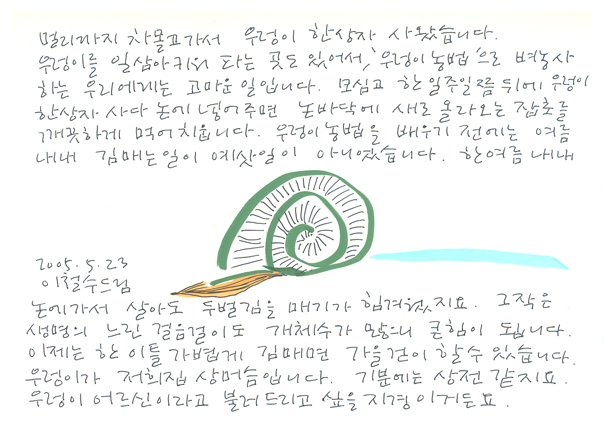 멀리까지 차몰고가서 우렁이 한상자 사왔습니다.
우렁이를 일삼아키워 파는 곳도 있어서, '우렁이농법'으로 벼농사
하는 우리에게는 고마운일입니다. 모심고 한 일주일쯤 뒤에 우렁이
한상자 사다 논에 넣어주면 논바닥에 새로 올라오는 잡초를
깨끗하게 먹어치웁니다. 우렁이농법을 배우기 전에는 여름
내내 김매는일이 예삿일이 아니었습니다. 한여름 내내
2005. 5. 23
이철수드림
논에가서 살아도 두벌김을 매기가 힘겨웠지요. 그작은
생명의 느린 걸음걸이도 개체수가 많으니 큰힘이 됩니다.
이제는 한 이틀 가볍게 김매면 가을걷이 할수 있습니다.
우렁이가 저희집 상머슴입니다. 기분에는 상전 같지요.
우렁이 어르신이라고 불러드리고 싶을 지경이거든요.